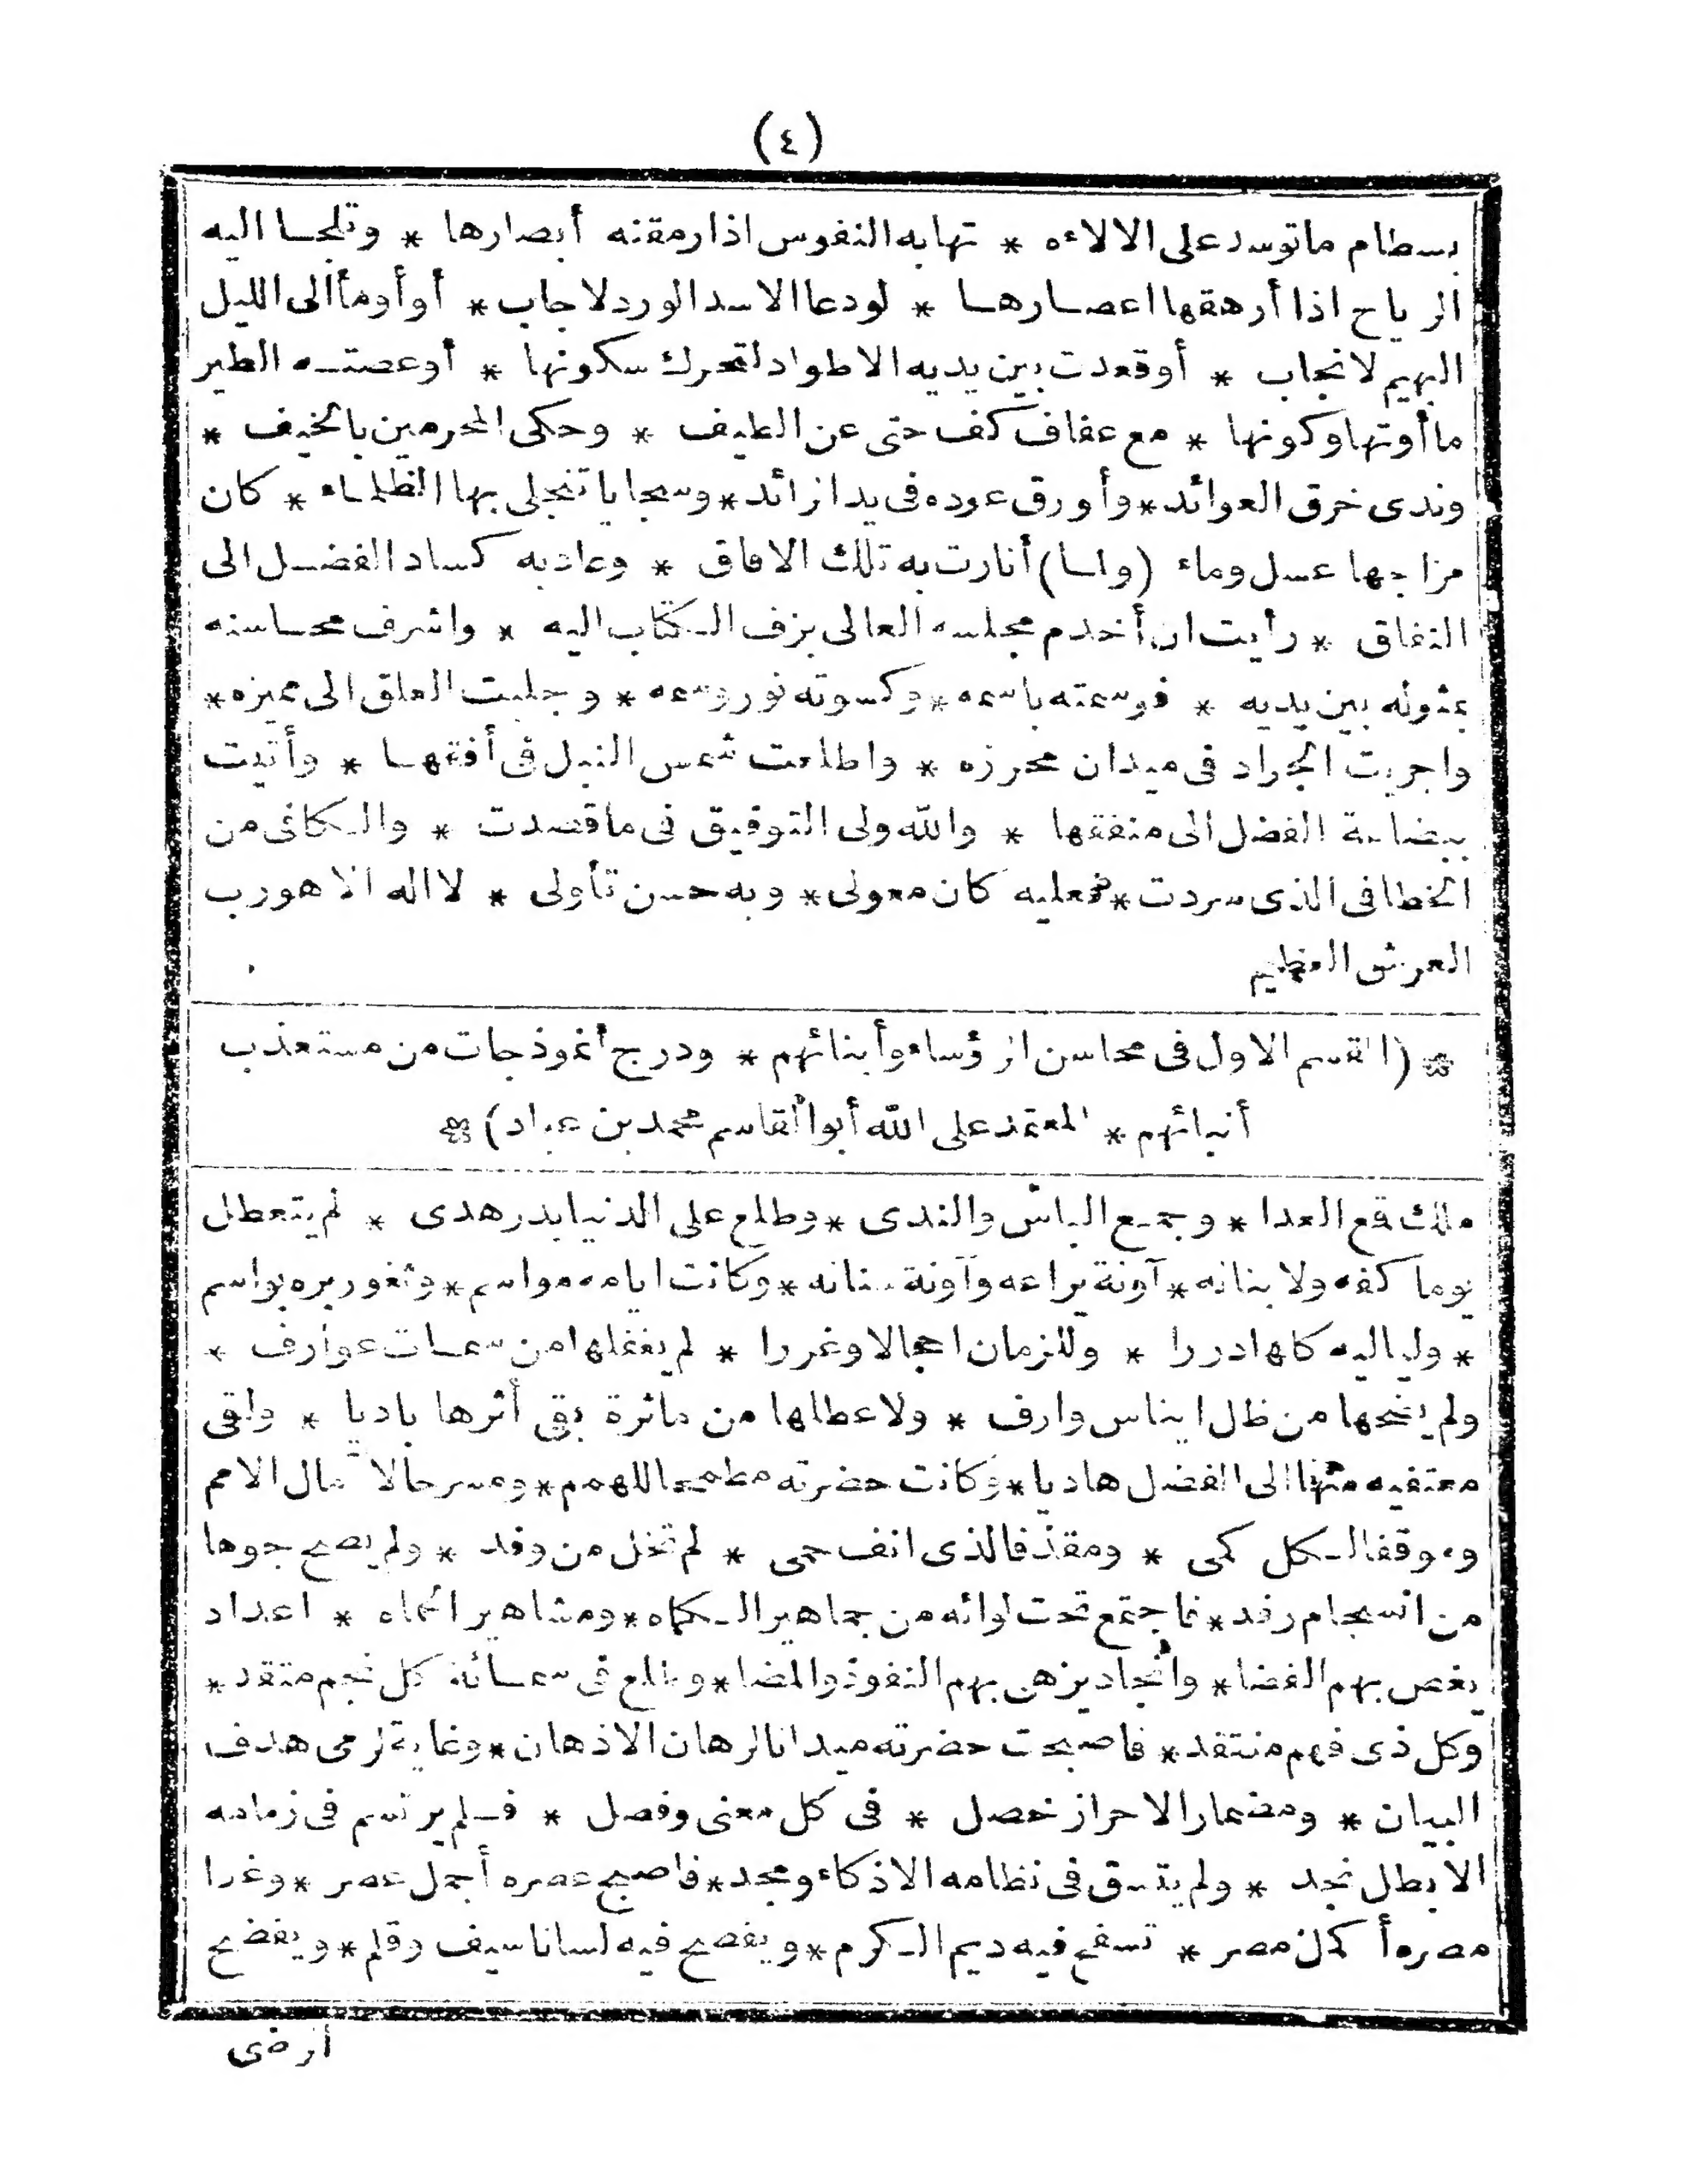 (٤)
بسطام ما توسد على الالاءه * تهابه النفوس اذا رمقته أبصارها * وتلجا اليه
الرياح اذا أرهقها اعصارها * لودعا الاسد الورد لاجاب * أو أومأ الى الليل
البهيم لانجاب * أوقعدت بين يديه الاطواد لتحرك سكونها * أو عصته الطير
ما أوتها وكونها * مع عفاف كف حتى عن الطيف * وحكى المحرمين بالخيف *
وندى خرق العوائد * وأورق عوده فى يد الرائد * وسجايا تنجلى بها الظلماء * كان
مزاجها عسل وماء (ولما) أنارت به تلك الافاق * وعاد به كساد الفضل الى
النفاق * رأيت ان أخدم مجلسه العالى بزف الكتاب اليه * واشرف محاسنه
بمثوله بين يديه * فوسمته باسمه * وكسوته نور وسمه * وجلبت العلق الى مميزه *
واجريت الجواد فى ميدان محرزه * واطلعت شمس النبل فى أفقها * وأتيت
ببضاعة الفضل الى منفقها * والله ولى التوفيق فى ما قصدت * والكافى من
الخطا فى الذى سردت * فعليه كان معولى * وبه حسن تأولى * لا اله الا هو رب
العرش العظيم
* (القسم الاول فى محاسن الرؤساء وأبنائهم * ودرج أنموذجات من مستعذب
أنبائهم * المعتمد على الله أبو القاسم محمد بن عباد) *
ملك قمع العدا * وجمع الباس والندى * وطلع على الدنيا بدر هدى * لم يتعطل
يوما كفه ولا بنانه * آونة يراعه وآونة سنانه * وكانت ايامه مواسم * وثغور بره بواسم
* ولياليه كلها دررا * وللزمان احجالا وغررا * لم يغفلها من سمات عوارف *
ولم يضحها من ظل ايناس وارف * ولا عطلها من ماثرة بقى أثرها باديا * ولقى
معتفيه منها الى الفضل هاديا * وكانت حضرته مطمحا للهمم * ومسرحا لا مال الامم
وموقفا لكل كمى * ومقذفا لذى انف حمى * لم تخل من وفد * ولم يصح جوها
من انسجام رفد * فاجتمع تحت لوائه من جماهير الكماه * ومشاهير الحماه * اعداد
يغص بهم الفضا * وانجاد يزهى بهم النفوذ والمضا * وطلع فى سمائه كل نجم متقد *
وكل ذى فهم منتقد * فاصبحت حضرته ميدانا لرهان الاذهان * وغاية لرمى هدف
البيان * ومضمارا لاحراز خصل * فى كل معنى وفصل * فلم يرتسم فى زمامه
الا بطل نجد * ولم يتسق فى نظامه الا ذكاء ومجد * فاصبح عصره أجمل عصر * وغدا
مصره أكمل مصر * تسفح فيه ديم الكرم * ويفصح فيه لسانا سيف وقلم * ويفضح
أرضى